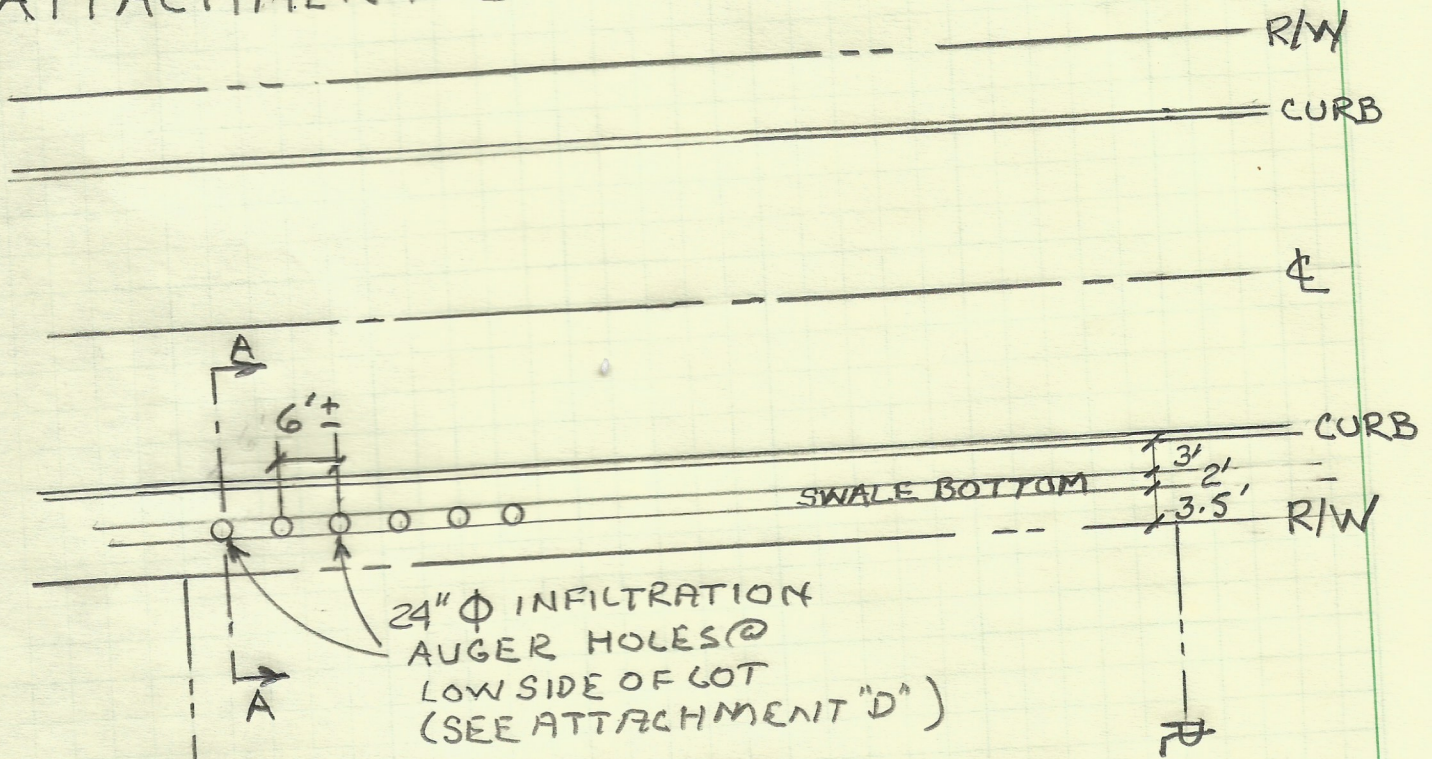 ATTACHMENT
R/W
CURB
℄
A
6'±
CURB
3'
SWALE BOTTOM
2'
3.5'
R/W
24"Φ INFILTRATION
AUGER HOLES@
LOW SIDE OF LOT
(SEE ATTACHMENT "D")
A